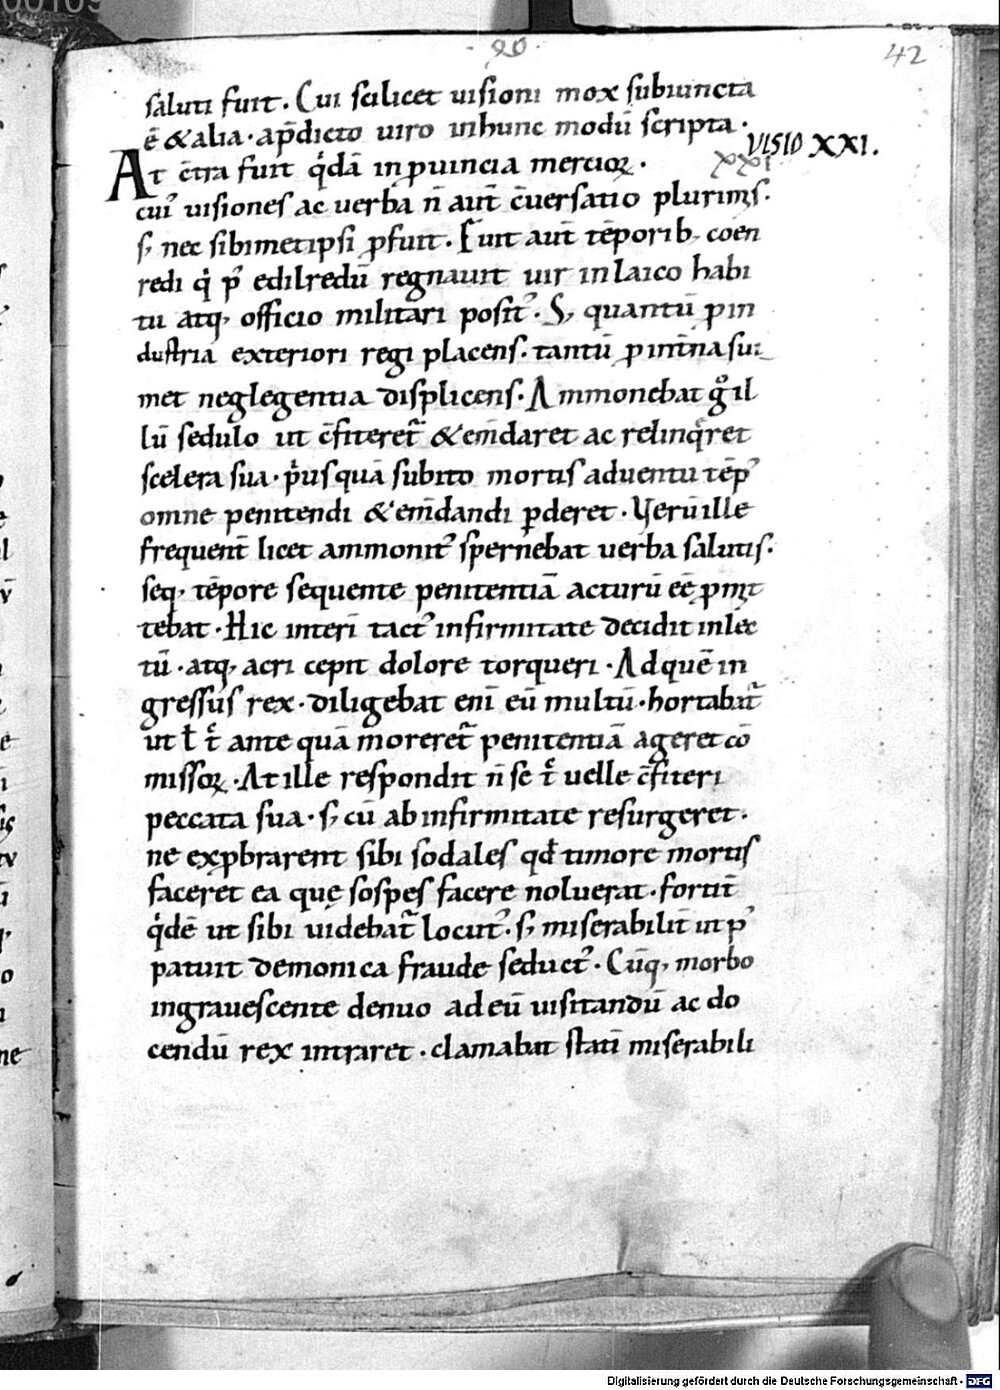 20.
42
saluti fuit. Cui scilicet uisioni mox subiuncta
ē &alia. ap̄dicto uiro inhunc modū scripta.
VISIO XXI.
xxi
At c̄tra fuit q̇dā inꝓuincia mercioꝝ.
cuiꝰ uisiones ac uerba n̄ aut̄ c̄uersatio plurimis.
s; nec sibimetipsi ꝓfuit. Fuit aut̄ tēporib; coen
redi q̇ pꝰ edilredū regnauit uir inlaico habi
tu atq; officio militari positꝰ. S; quantū ꝓ in
dustria exteriori regi placens. tantū ꝓ int̄na sui
met neglegentia displicens. Ammonebat gͦ il
lū sedulo ut c̄fiteret᷑ &em̄daret ac relinq̇ret
scelera sua. ṗusquā subito mortis aduentu tēpꝰ
omne penitendi &em̄dandi ꝑderet. Verū ille
frequent̄ licet ammonitꝰ spernebat uerba salutis.
seq; tēpore sequente penitentiā acturū ēe ꝓmit
tebat. Hic interī tactꝰ infirmitate decidit inlec
tū. atq; acri cepit dolore torqueri. Adquē in
gressus rex. diligebat enī eū multū. hortabat᷑
ut ł t̄ ante quā moreret᷑ penitentiā ageret cō
missoꝝ. At ille respondit n̄ se t̄ uelle c̄fiteri
peccata sua. s; cū ab infirmitate resurgeret.
ne exꝓbrarent sibi sodales qđ timore mortis
faceret ea quę sospes facere noluerat. fortit̄
q̇dē ut sibi uidebat᷑ locutꝰ. s; miserabilit̄ ut pꝰ
patuit demonica fraude seductꝰ. Cūq; morbo
ingrauescente denuo ad eū uisitandū ac do
cendū rex intraret. clamabat statī miserabili
Digitalisierung gefördert durch die Deutsche Forschungsgemeinschaft - DFG